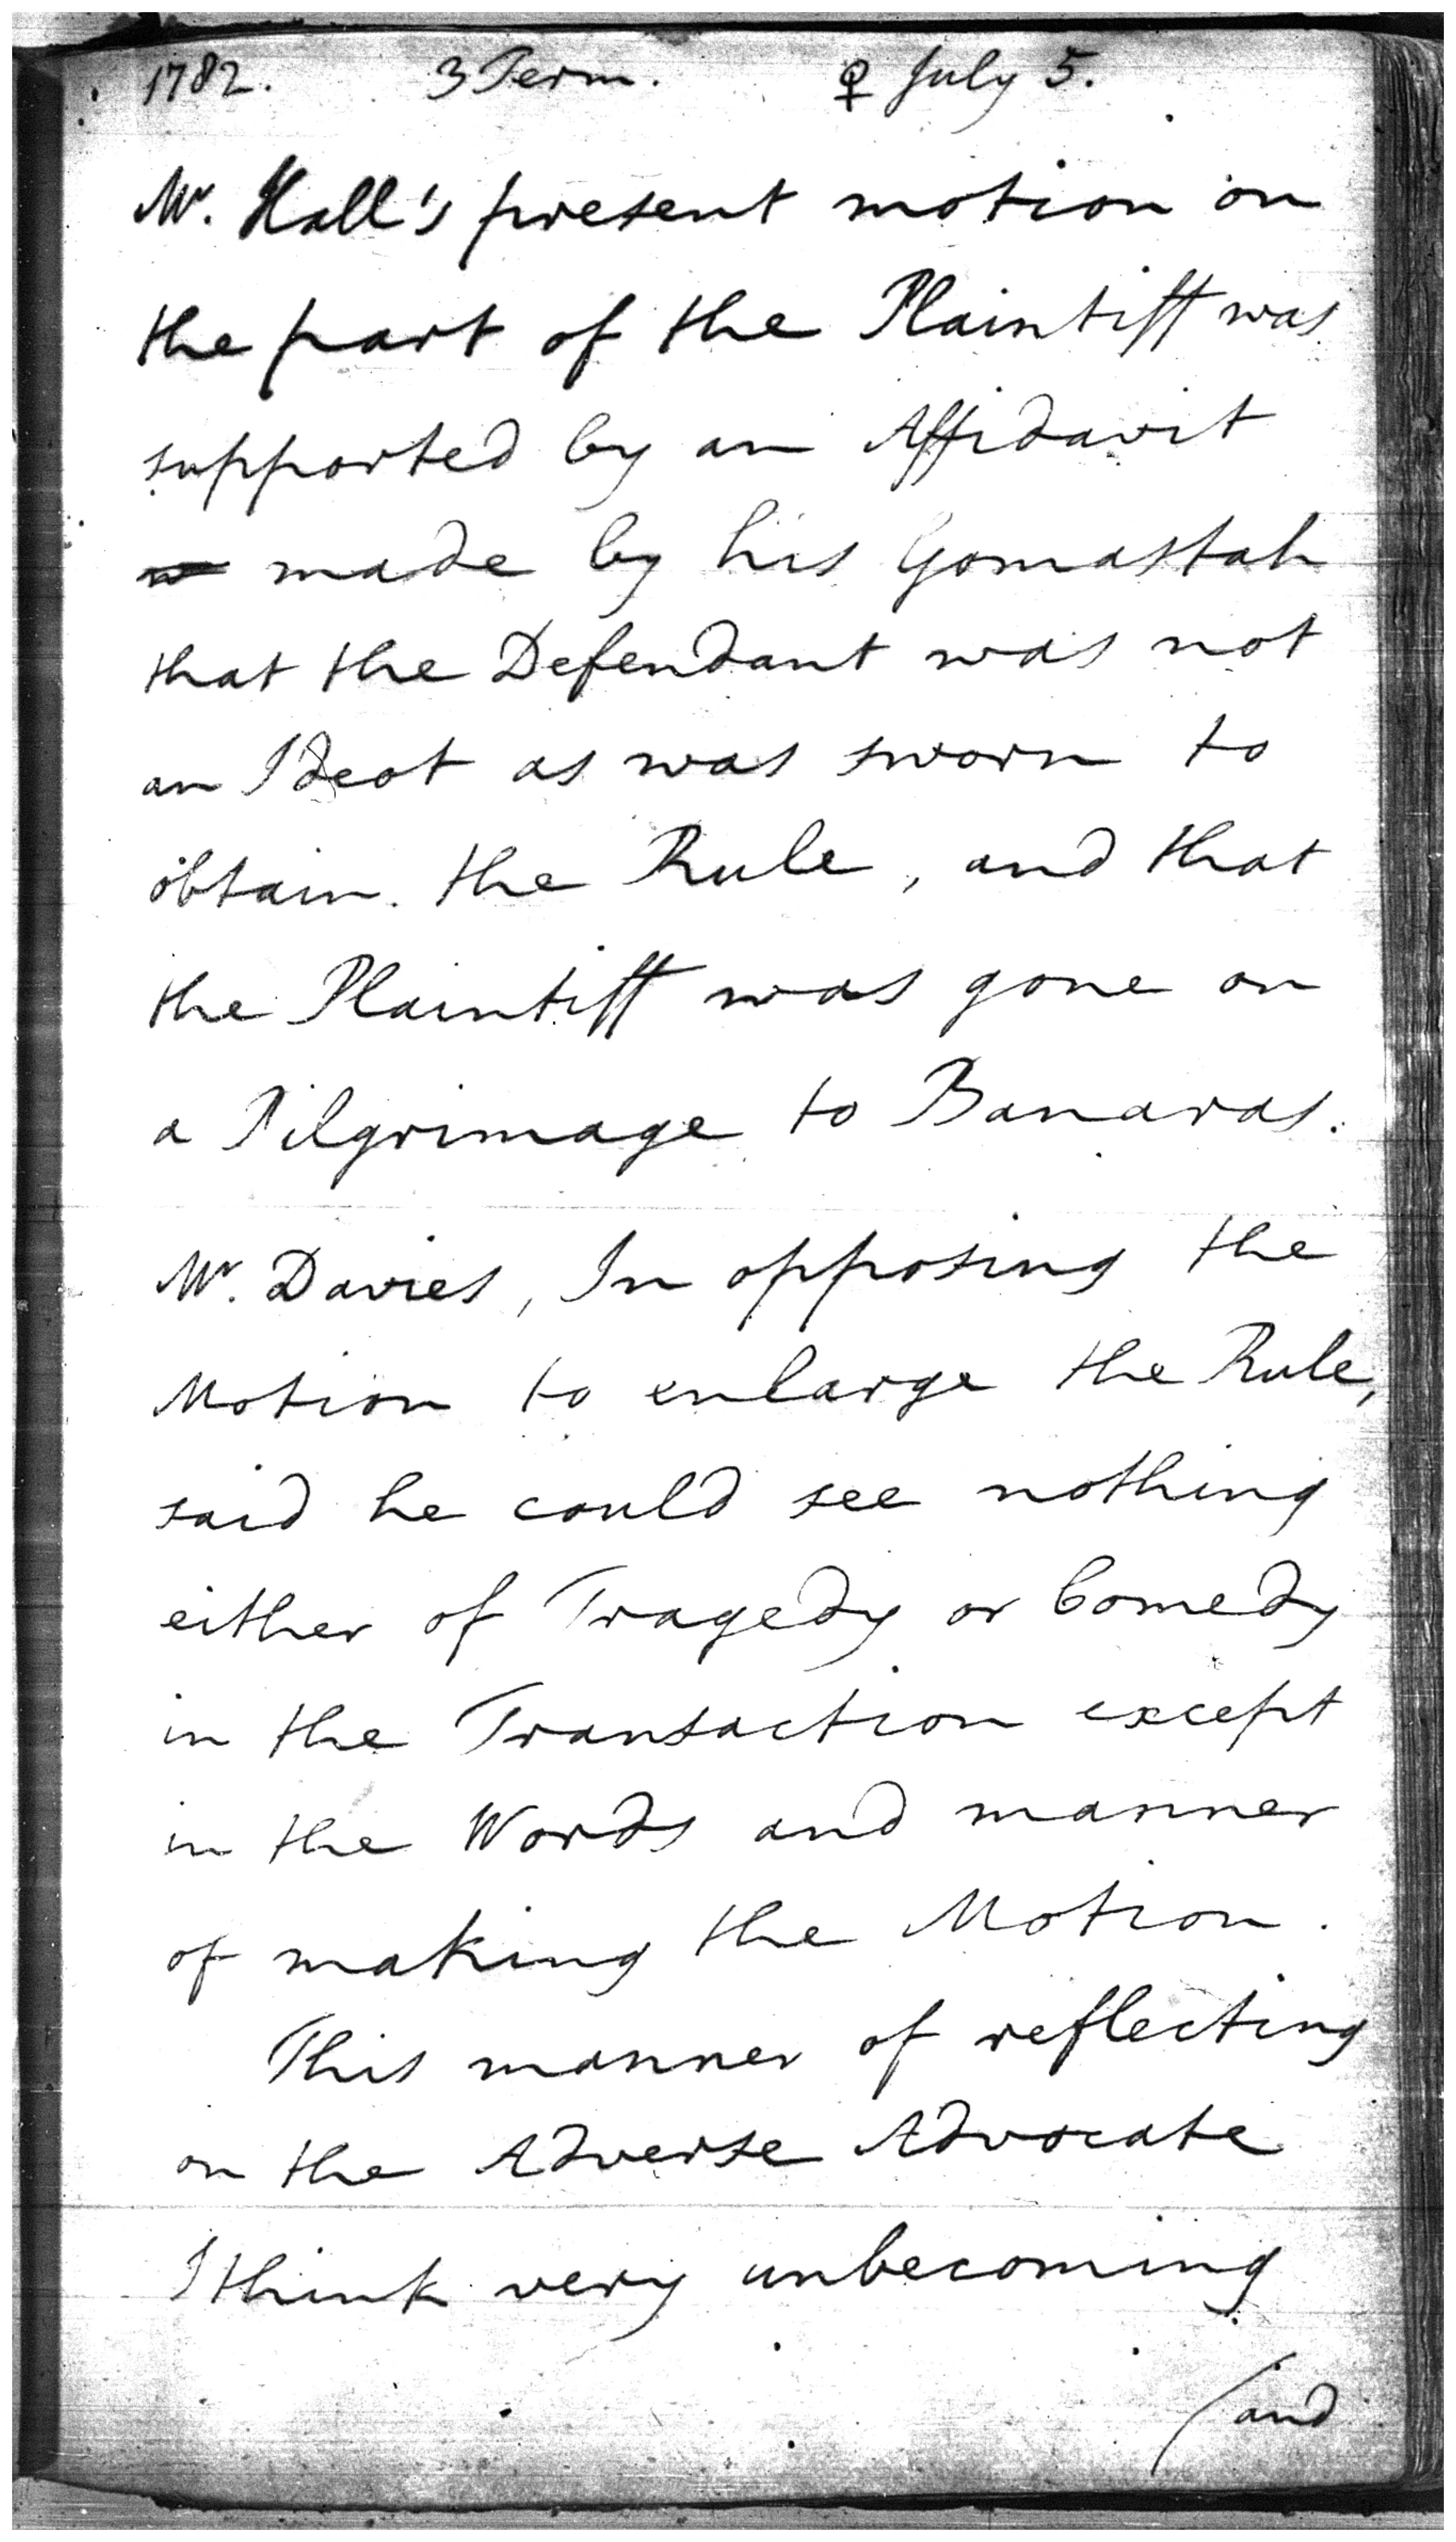 1782. 3 Term. ♀ July 5.
Mr. Hall's present motion on
the part of the Plaintiff was
supported by an Affidavit
made by his Gomastah
that the Defendant was not
an Ideot as was sworn to
obtain. the Rule, and that
the Plaintiff was gone on
a Pilgrimage to Banaras.
Mr. Davies, In opposing the
Motion to enlarge the Rule,
said he could see nothing
either of Tragedy or Comedy
in the Transaction except
in the Words and manner
of making the Motion.
This manner of reflecting
on the Adverse Advocate
I think very unbecoming
(and